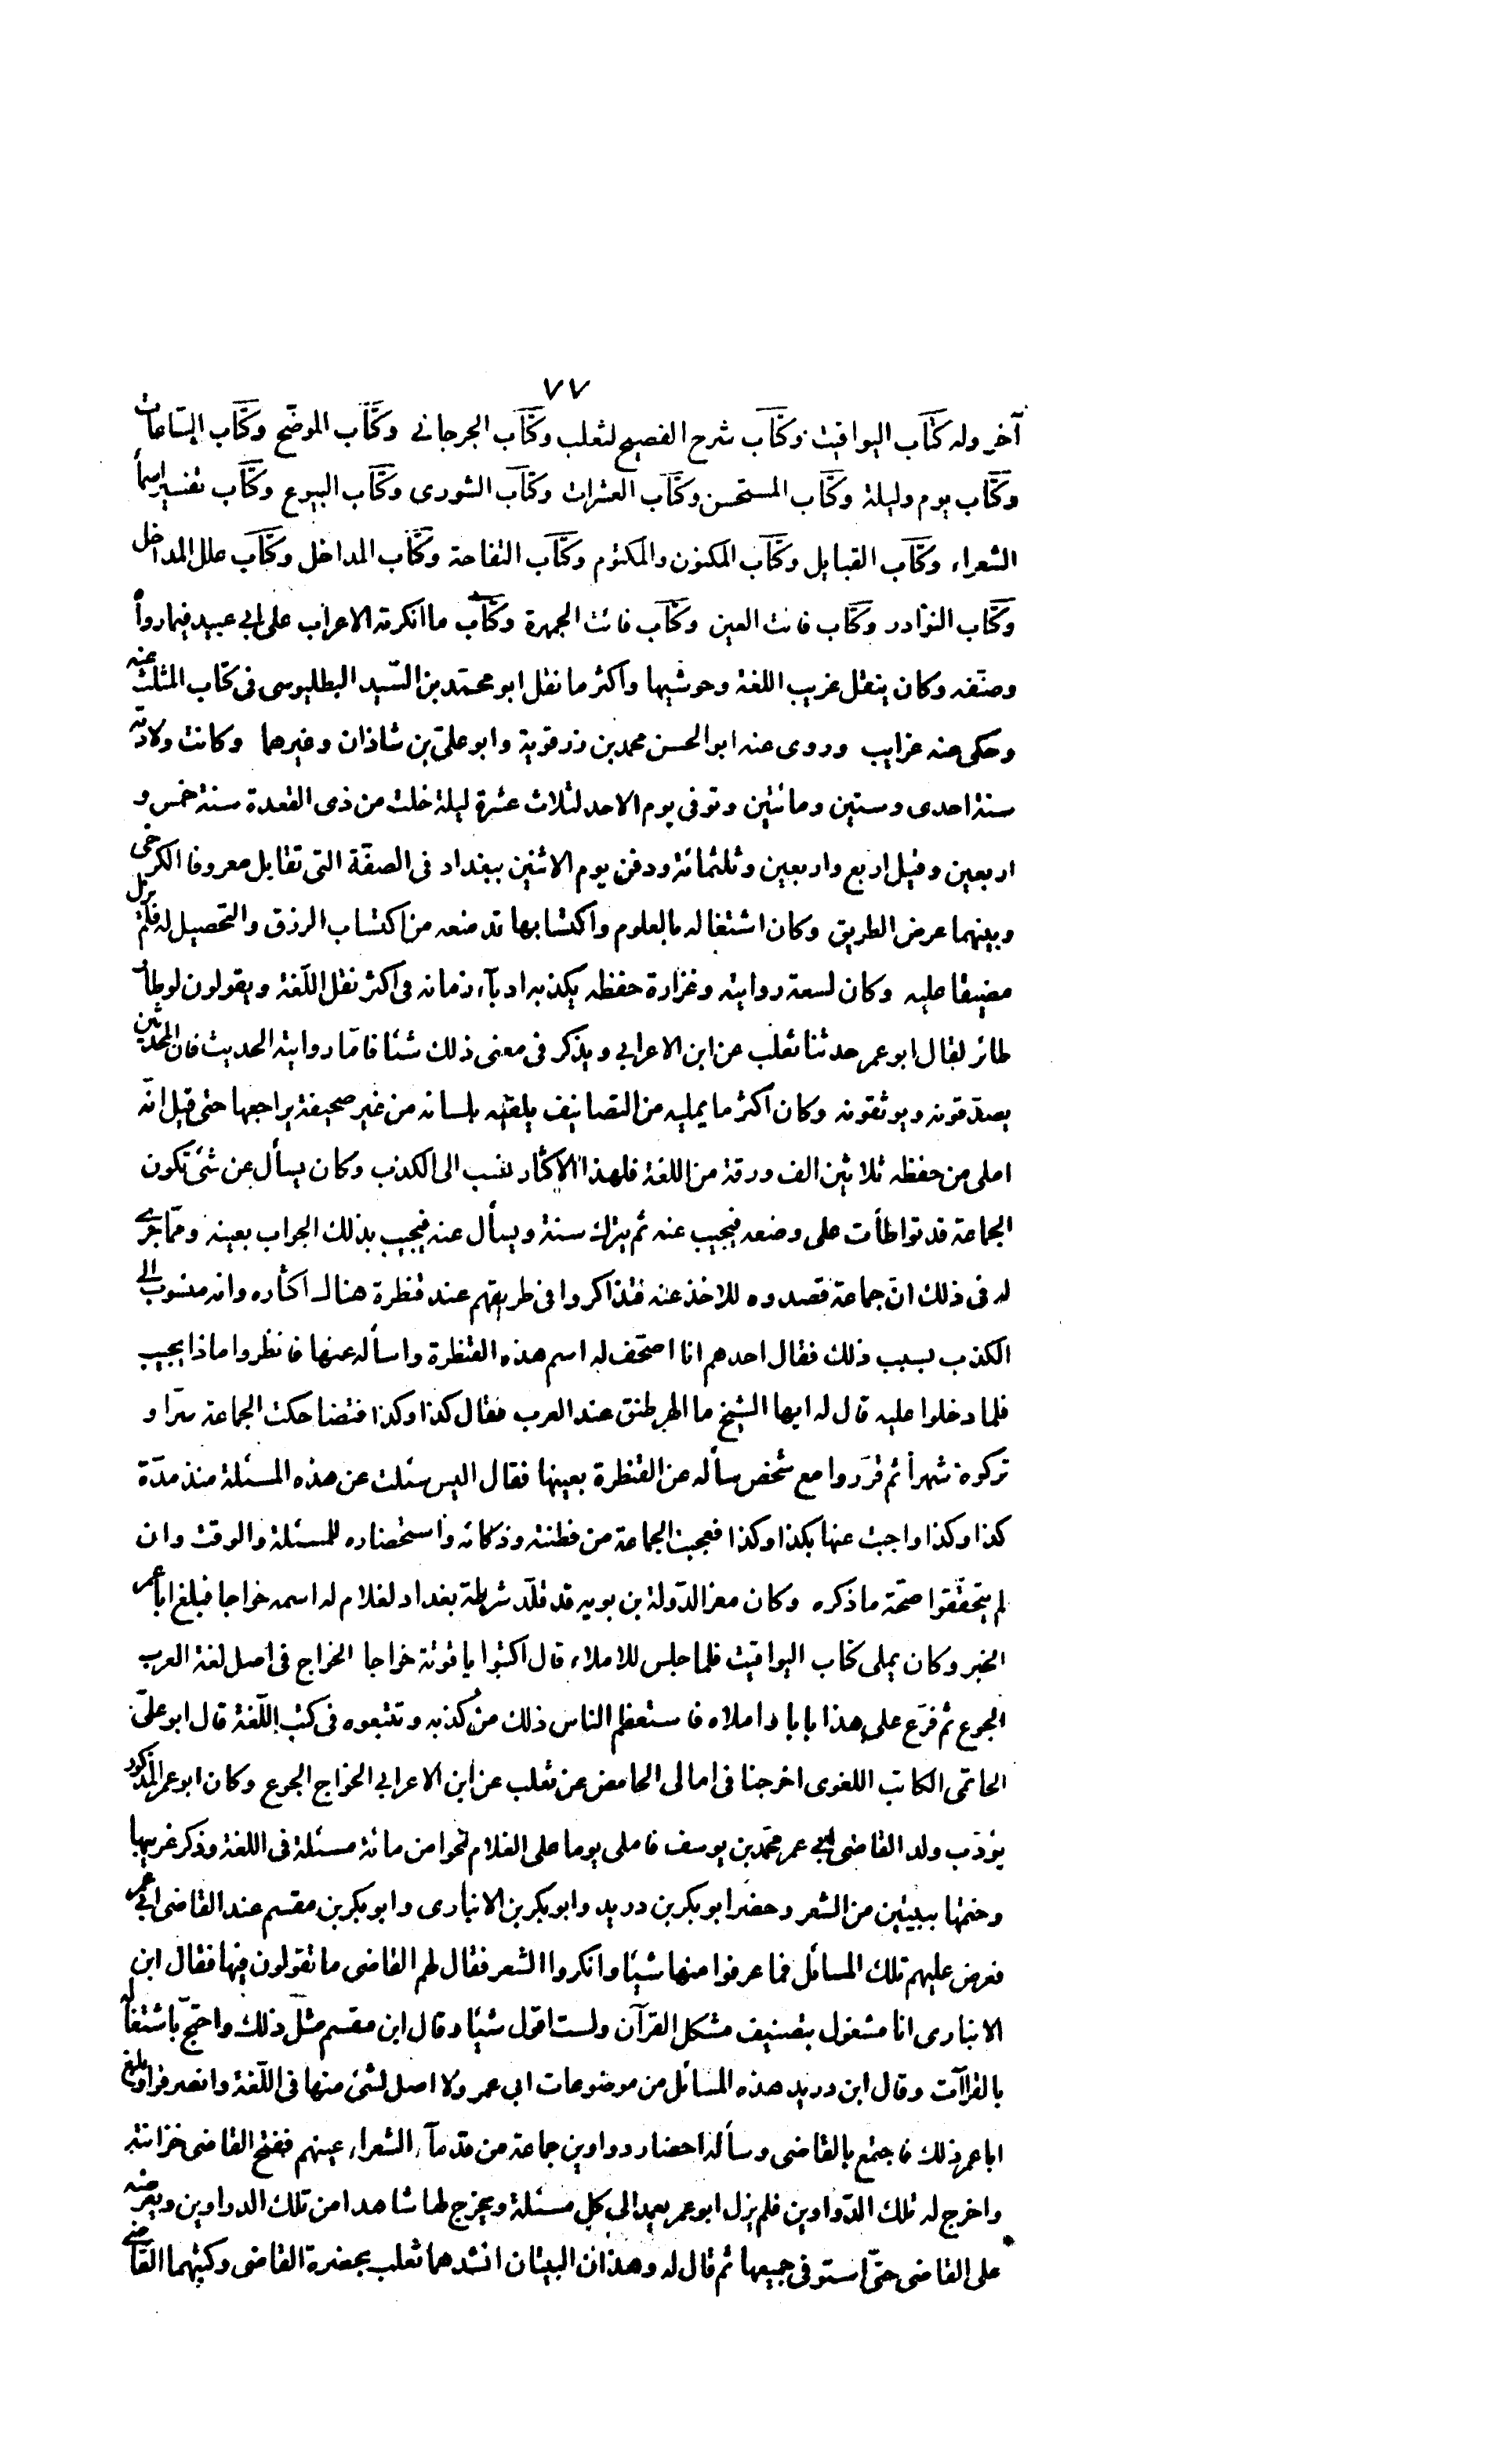 ٧٧
آخر وله كتاب اليواقيت وكتاب شرح الفصيح لثعلب وكتاب الجرجاني وكتاب الموضح وكتاب الساعات
وكتاب يوم وليلة وكتاب المستحسن وكتاب العشرات وكتاب الشورى وكتاب البيوع وكتاب تفسير اسما
الشعراء وكتاب القبايل وكتاب المكنون والمكتوم وكتاب التفاحة وكتاب المداخل وكتاب علل المداخل
وكتاب النوادر وكتاب فائت العين وكتاب فائت الجمهرة وكتاب ما انكرته الاعراب على ابي عبيد فيما رواه
وصنّفه وكان ينقل غريب اللغة وحوشيها واكثر ما نقل ابو محمّد بن السّيد البطليوسى فى كتاب المثلث عنه
وحكى عنه غرايب وروى عنه ابو الحسن محمد بن زرقوية وابو علىّ بن شاذان وغيرهما وكانت ولادته
سنة احدى وستين ومائتين وتوفى يوم الاحد لثلاث عشرة ليلة خلت من ذى القعدة سنة خمس و
اربعين وقيل اربع واربعين وثلثمائة ودفن يوم الاثنين ببغداد فى الصفّة التى تقابل معروفا الكرخى
وبينهما عرض الطريق وكان اشتغاله بالعلوم واكتسابها قد منعه من اكتساب الرزق والتحصيل له فلم يزل
مضيقا عليه وكان لسعة روايته وغزارة حفظه يكذبه ادبآء زمانه فى اكثر نقل اللّغة ويقولون لو طار
طائر لقال ابو عمر حدثنا ثعلب عن ابن الاعرابي ويذكر فى معنى ذلك شئا فامّا روايته الحديث فان المحدثين
يصدّقونه ويوثقونه وكان اكثر ما يمليه من التصانيف يلقيه بلسانه من غير صحيفة يراجعها حتى قيل انّه
املى من حفظه ثلاثين الف ورقة من اللغة فلهذا الاكثار نسب الى الكذب وكان يسأل عن شئ تكون
الجماعة قد تواطأت على وضعه فيجيب عنه ثم يترك سنة ويسأل عنه فيجيب بذلك الجواب بعينه وممّا جرى
له فى ذلك انّ جماعة قصدوه للاخذ عنه فتذاكروا فى طريقهم عند قنطرة هناك اكثاره وانه منسوب الى
الكذب بسبب ذلك فقال احدهم انا اصحّف له اسم هذه القنظرة واسأله عنها فانظروا ماذا يجيب
فلما دخلوا عليه قال له ايها الشيخ ما الهرطنق عند العرب فقال كذا وكذا فتضاحكت الجماعة سرّا و
تركوه شهرأ ثم قرّروا مع شخص سأله عن القنظرة بعينها فقال اليس سئلت عن هذه المسئلة منذ مدّة
كذا وكذا واجبت عنها بكذا وكذا فعجبت الجماعة من فطنته وذكائه واستحضاره للمسئلة والوقت وان
لم يتحقّقوا صحّة ما ذكره وكان معز الدّولة بن بويه قد قلّد شرطة بغداد لغلام له اسمه خواجا فبلغ ابا عمر
الخبر وكان يملى كتاب اليواقيت فلما جلس للاملاء قال اكتبوا ياقوتة خواجا الخواج فى اصل لغة العرب
الجوع ثم فرّع على هذا بابا واملاه فاستعظم الناس ذلك من كذبه وتتبعوه فى كتب اللّغة قال ابو علىّ
الحاتمى الكاتب اللغوى اخرجنا فى امالى الحامض عن ثعلب عن ابن الاعرابي الخواج الجوع وكان ابو عمر المذكور
يؤدّب ولد القاضى ابي عمر محمّد بن يوسف فاملى يوما على الغلام نحوا من مائة مسئلة فى اللغة وذكر غريبها
وختمها ببيتين من الشعر وحضر ابو بكر بن دريد وابو بكر بن الانبارى وابو بكر بن مقسم عند القاضى ابي عمر
فعرض عليهم تلك المسائل فما عرفوا منها شيئا وانكروا الشعر فقال لهم القاضى ما تقولون فيها فقال ابن
الانبارى انا مشغول بتصنيف مشكل القرآن ولست اقول شيئا وقال ابن مقسم مثل ذلك واحتجّ باشتغاله
بالقراآت وقال ابن دريد هذه المسائل من موضوعات ابى عمر ولا اصل لشئ منها فى اللّغة وانصرفوا وبلغ
ابا عمر ذلك فاجتمع بالقاضى وسأله احضار دواوين جماعة من قدمآء الشعراء عينهم ففتح القاضى خزانته
واخرج له تلك الدّواوين فلم يزل ابو عمر يعمد الى كل مسئلة ويخرج لها شاهدا من تلك الدواوين ويعرضه
على القاضى حتّى استوفى جميعها ثم قال له وهذان البيتان انشدهما ثعلب بحضرة القاضى وكتبهما القاضى